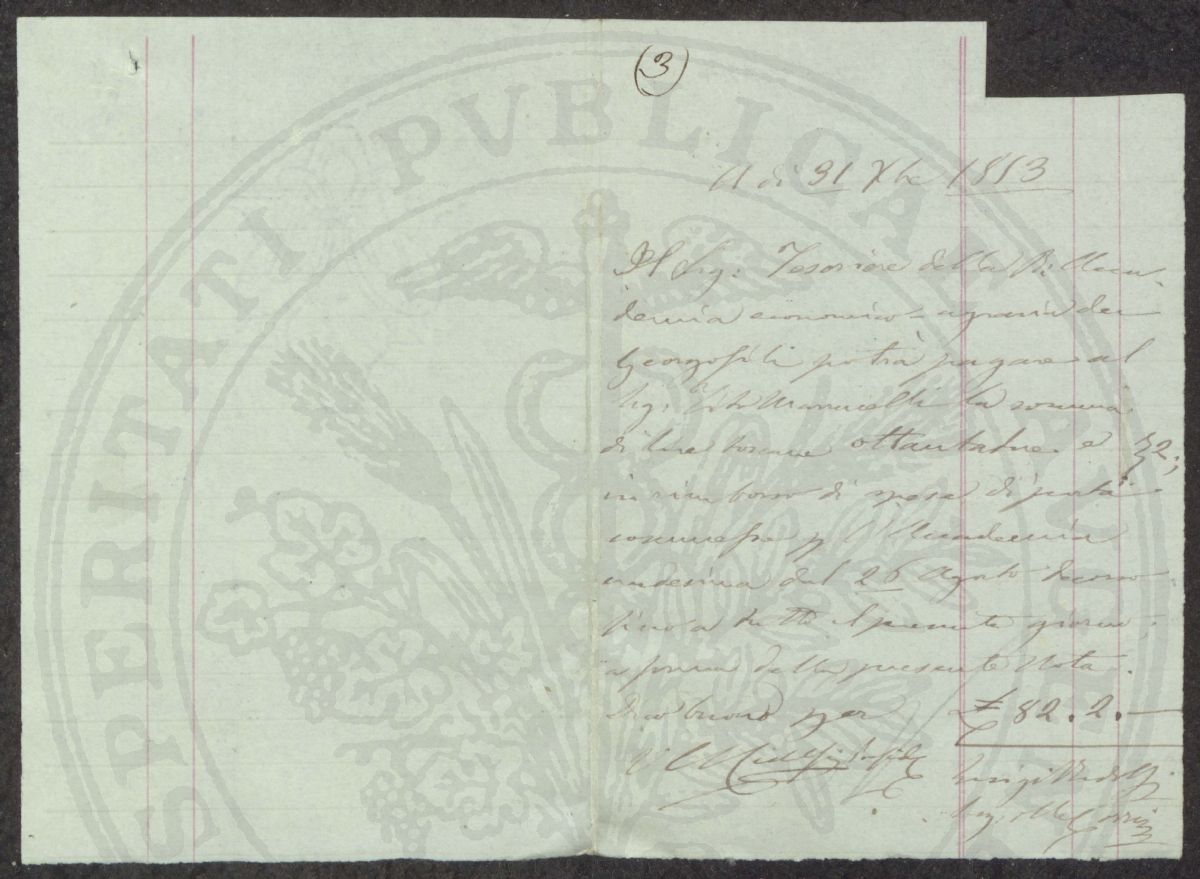 3
PROSPERITATI PVBLICAE
A dì 31 Xbre 1853
Il Sig: Tesoriere della R: Acca-
demia economico-agraria dei
Georgofili potrà pagare al
Sig: la somma
di lire toscane ottantadue e 2;
in rimborso di spese di posta
commesse p l'Accademia
medesima dal 26 Agosto decorso
fino a tutto il presente giorno,
a forma della presente Nota.
Dico buono per £ 82. 2. —
Luigi Ridolfi